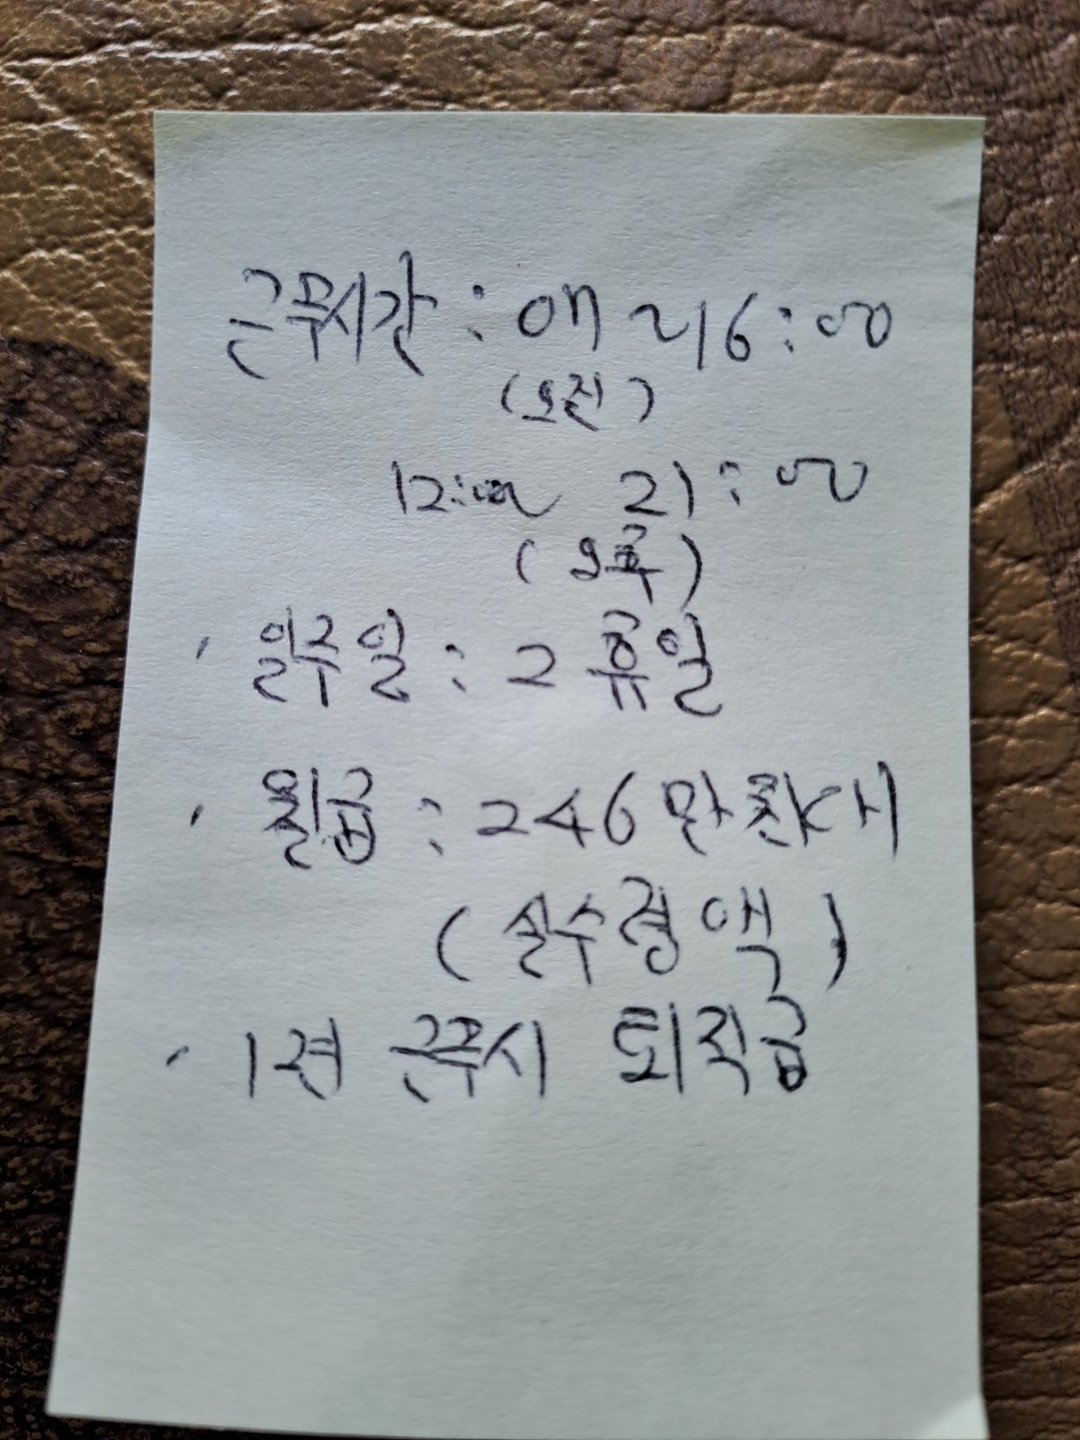 근무시간 : 07 ~ 16:00
(오전)
12:00~ 21:00
(오후)
· 일주일 : 2 휴일
· 월급 : 246만원
(실수령액)
· 1년 근무시 퇴직금